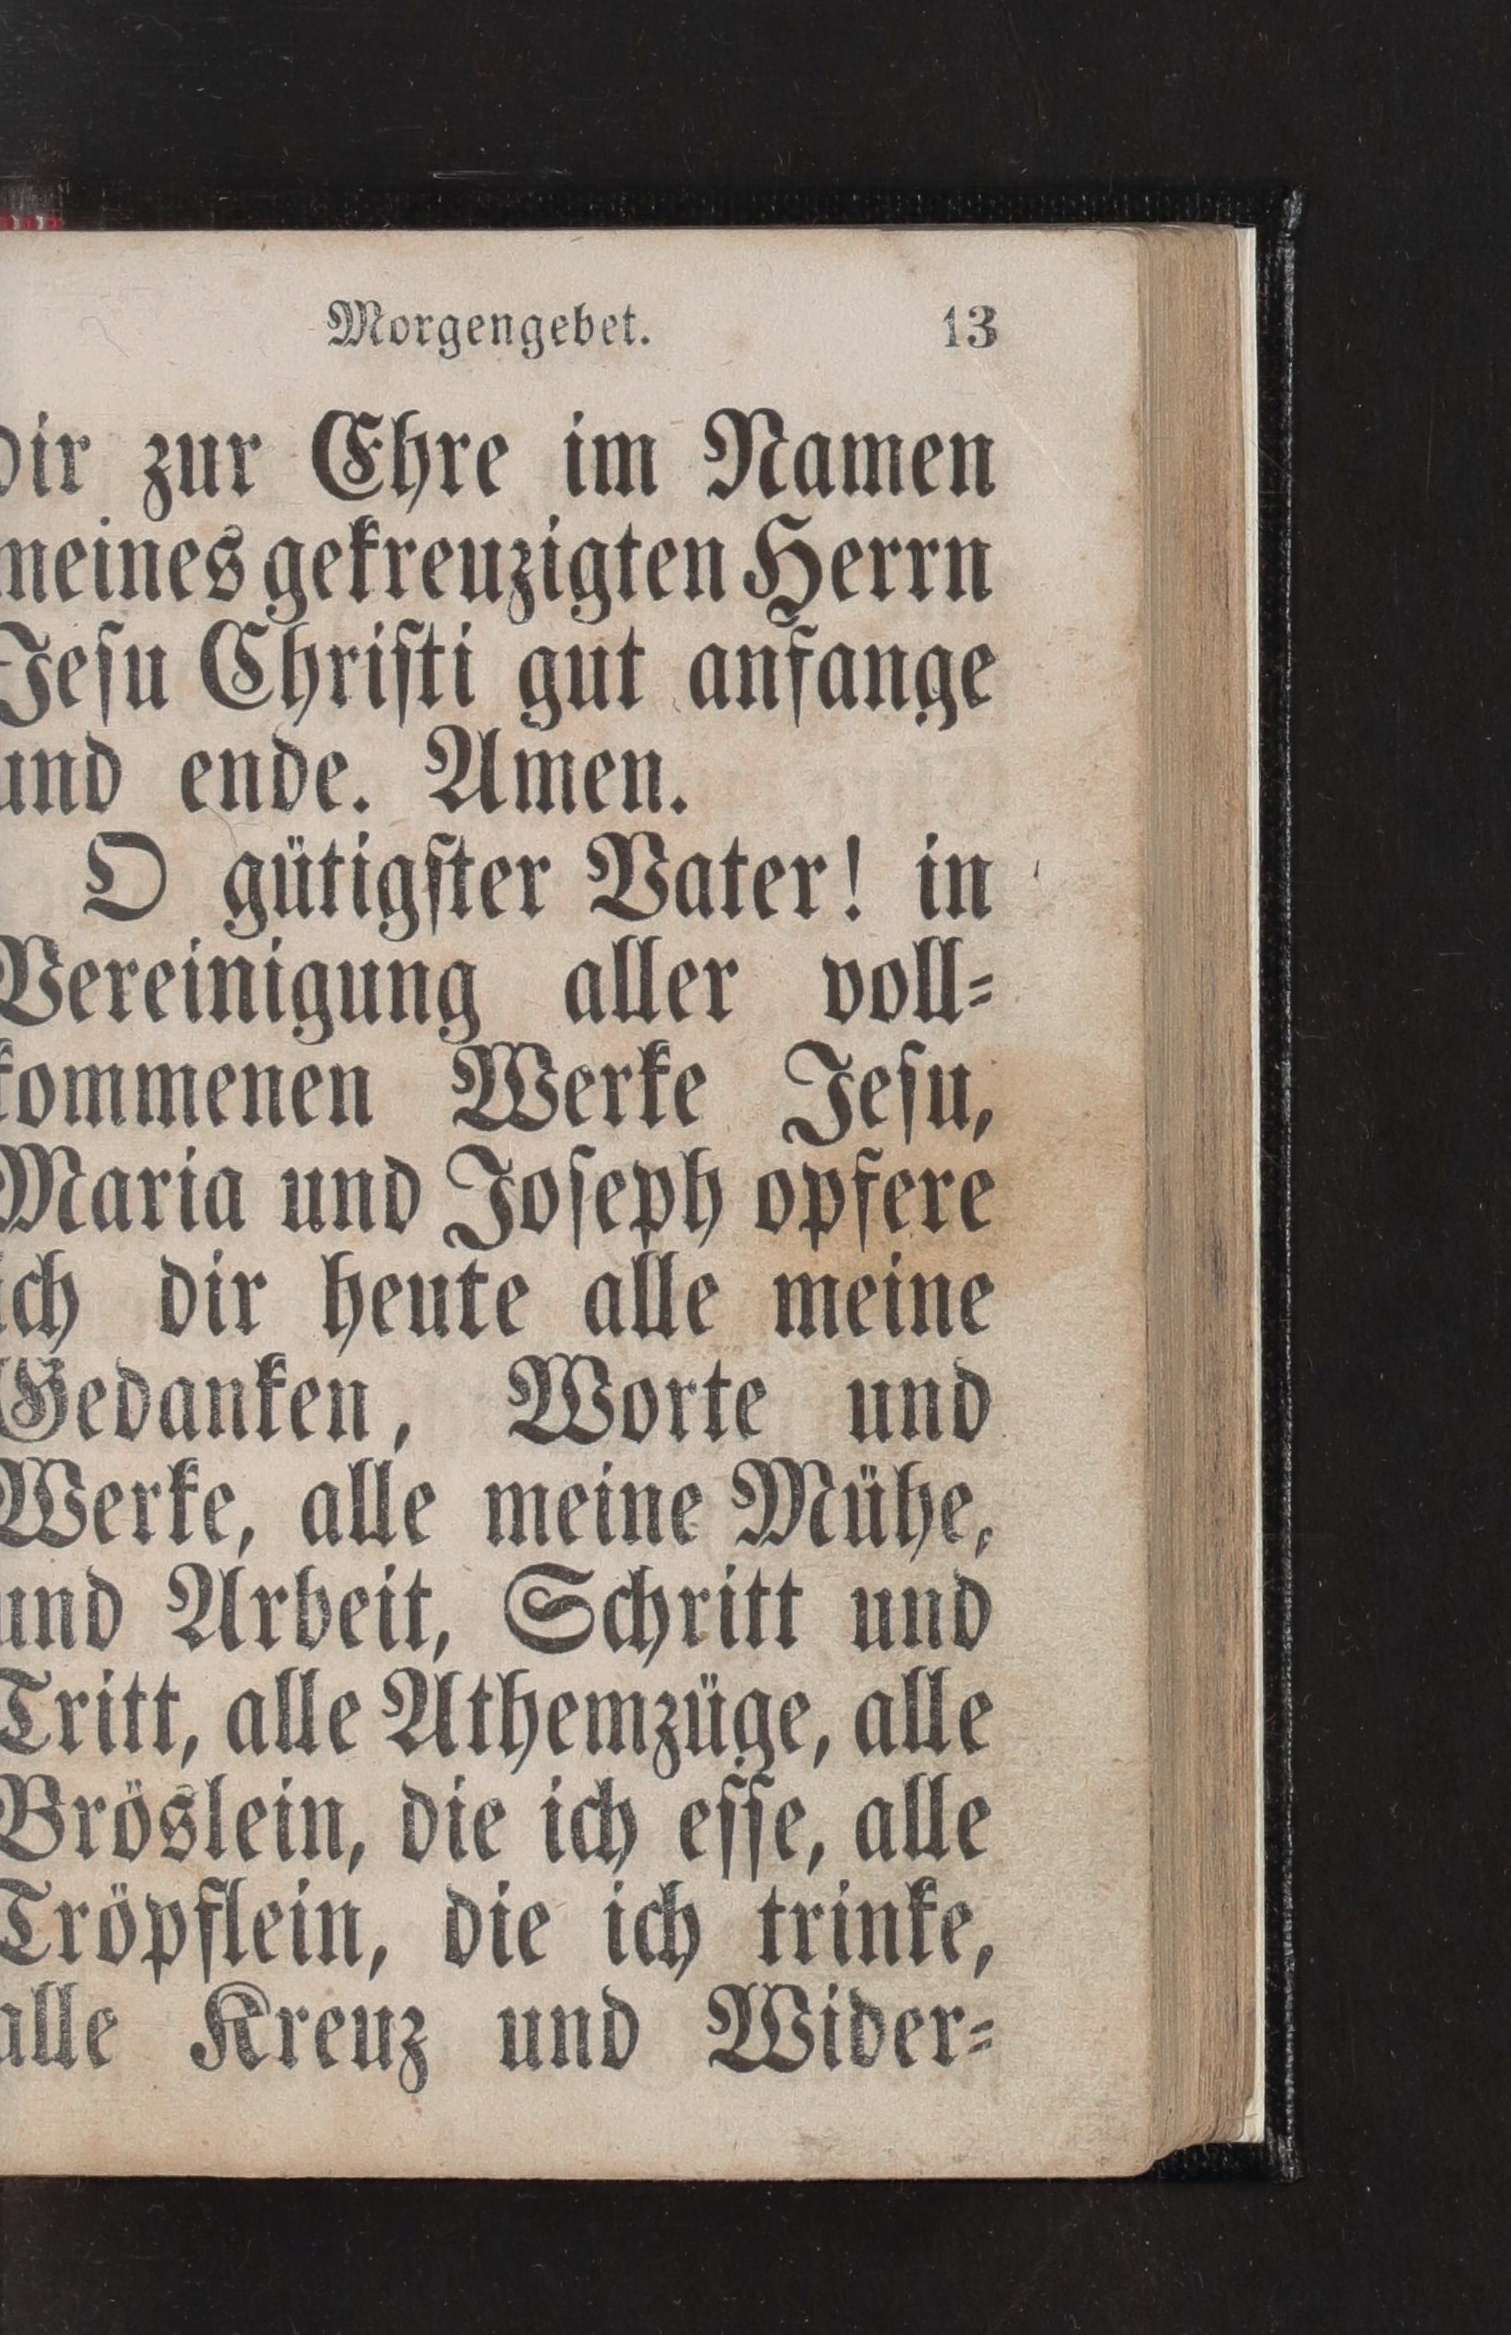 Morgengebet. 13
dir zur Ehre im Namen
meines gekreuzigten Herrn
Jesu Christi gut anfange
und ende. Amen.
O gütigster Vater! in
Vereinigung aller voll-
kommenen Werke Jesu,
Maria und Joseph opfere
ich dir heute alle meine
Gedanken, Worte und
Werke, alle meine Mühe,
und Arbeit, Schritt und
Tritt, alle Athemzüge, alle
Bröslein, die ich esse, alle
Tröpflein, die ich trinke,
alle Kreuz und Wider-